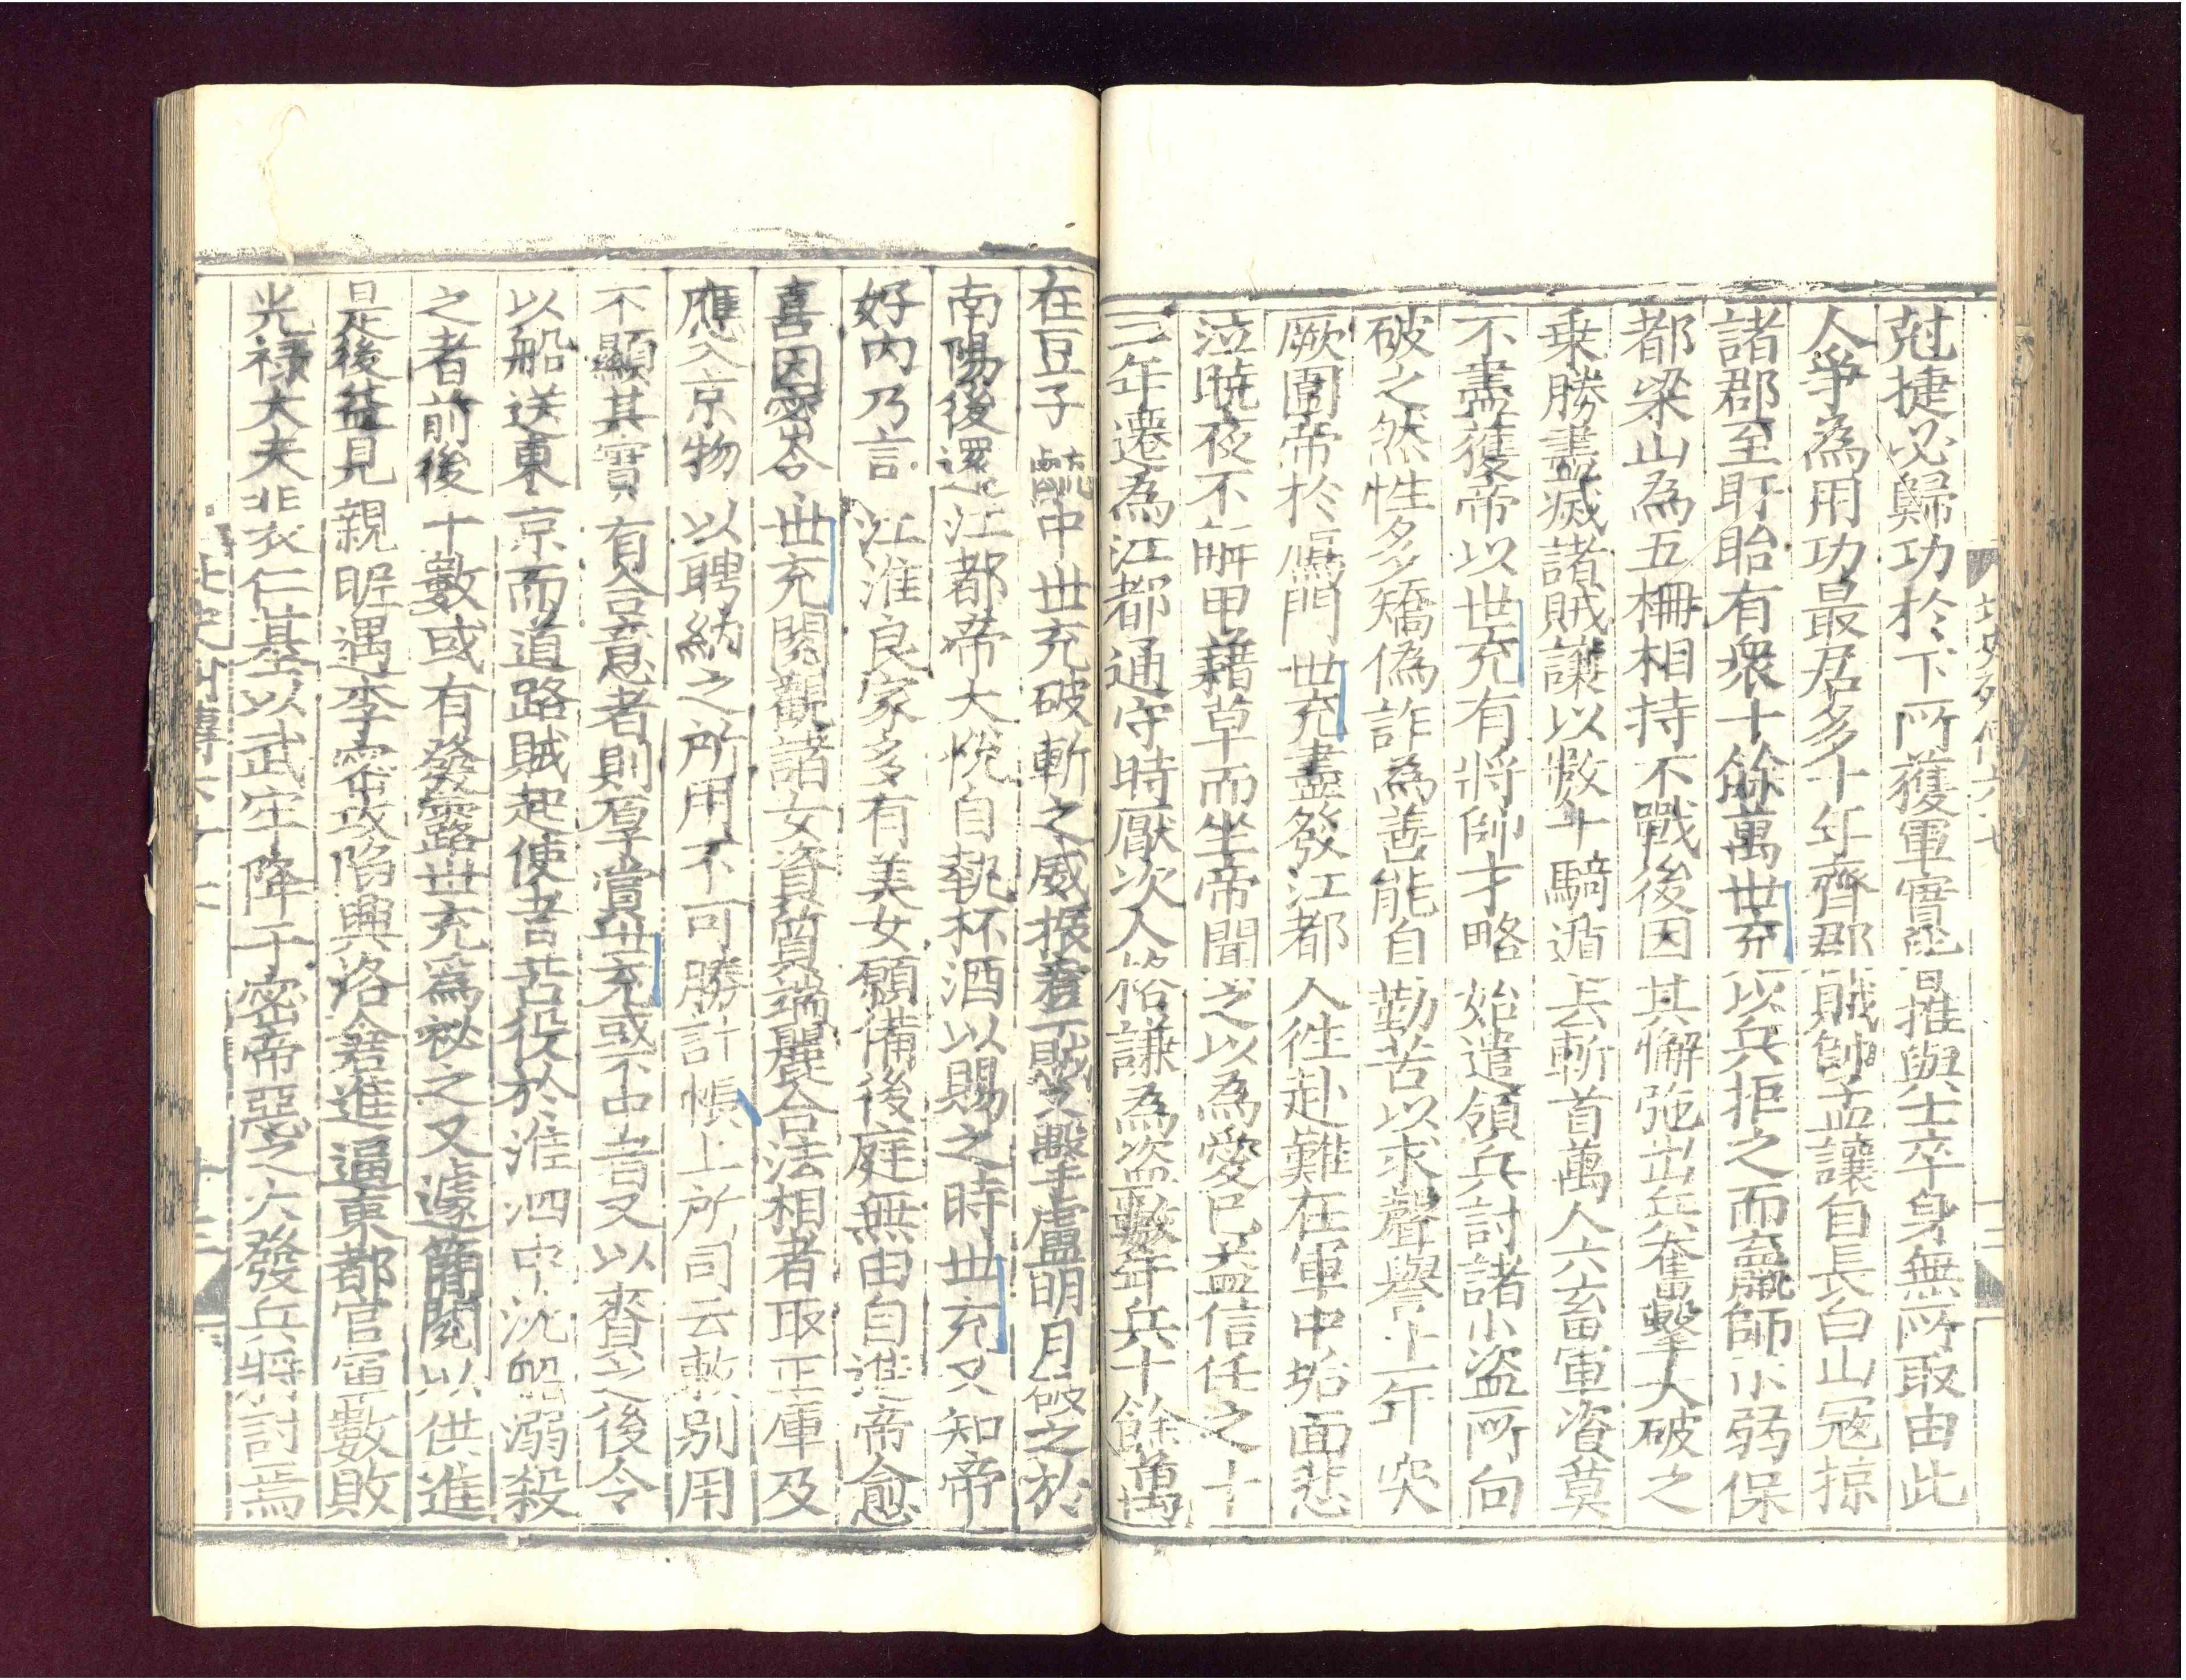 尅捷必歸功於下所獲軍實皆推與士卒身無所取由此
人爭為用功最居多十年齊郡賊帥孟讓自長白山寇掠
諸郡至盱眙有衆十餘萬世充以兵拒之而羸師示弱保
都梁山為五柵相持不戰後因其懈弛出兵奮擊大破之
乗勝盡滅諸賊讓以數十騎遁去斬首萬人六畜軍資莫
不盡獲帝以世充有將帥才略始遣領兵討諸小盜所向
破之然性多矯偽詐為善能自勤苦以求聲譽十一年突
厥圍帝於鴈門世充盡發江都人徃赴難在軍中垢面悲
泣曉夜不解甲藉草而坐帝聞之以為愛已益信任之十
二年遷為江都通守時厭次人格謙為盜數年兵十餘萬
在豆子䴚中世充破斬之威振羣賊又擊盧明月破之於
南陽後還江都帝大悅自執杯酒以賜之時世充又知帝
好內乃言江淮良家多有美女願備後庭無由自進帝愈
喜因密令世充閱觀諸女資質端麗合法相者取正庫及
應入京物以聘納之所用不可勝計帳上所司云敕別用
不顯其實有合意者則厚賞世充或不中者又以賚之後令
以船送東京而道路賊起使者苦役於淮泗中沈船溺殺
之者前後十數或有發露世充爲祕之又遽簡閱以供進
是後益見親昵遇李密攻陷興洛倉進逼東都官軍數敗
光祿大夫裴仁基以武牢降于密帝惡之大發兵將討焉